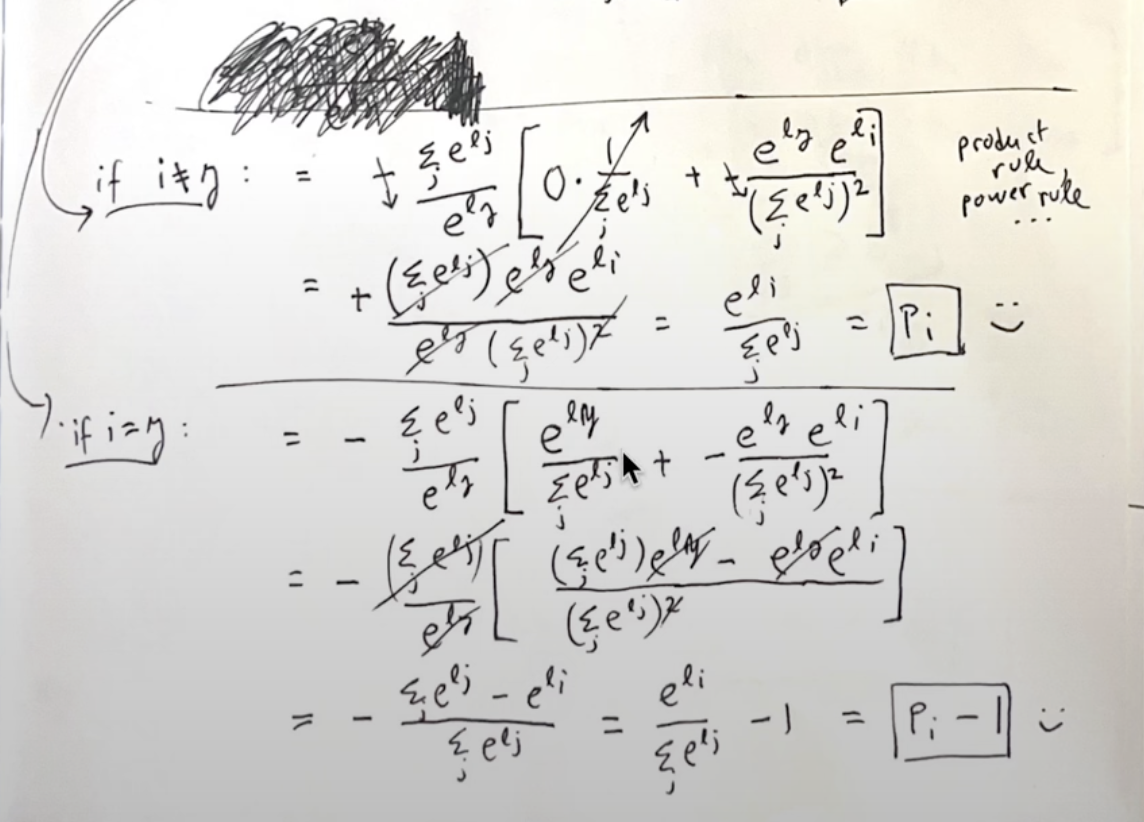 if i≠y : = + \frac{\sum_j e^{l_j}}{e^{l_y}} [ 0 · \frac{1}{\sum_j e^{l_j}} + + \frac{e^{l_y} e^{l_i}}{(\sum_j e^{l_j})^2} ] product rule, power rule ...
= + \frac{(\sum_j e^{l_j}) e^{l_y} e^{l_i}}{e^{l_y} (\sum_j e^{l_j})^2} = \frac{e^{l_i}}{\sum_j e^{l_j}} = P_i
if i=y : = - \frac{\sum_j e^{l_j}}{e^{l_y}} [ \frac{e^{l_y}}{\sum_j e^{l_j}} + - \frac{e^{l_y} e^{l_i}}{(\sum_j e^{l_j})^2} ]
= - \frac{(\sum_j e^{l_j})}{e^{l_y}} [ \frac{(\sum_j e^{l_j}) e^{l_y} - e^{l_y} e^{l_i}}{(\sum_j e^{l_j})^2} ]
= - \frac{\sum_j e^{l_j} - e^{l_i}}{\sum_j e^{l_j}} = \frac{e^{l_i}}{\sum_j e^{l_j}} - 1 = P_i - 1